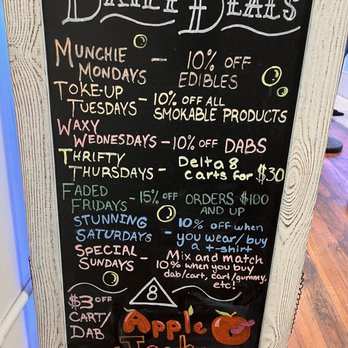 DAILY DEALS
MUNCHIE
MONDAYS - 10% OFF
EDIBLES
TOKE-UP
TUESDAYS - 10% OFF ALL
SMOKABLE PRODUCTS
WAXY
WEDNESDAYS - 10% OFF DABS
THRIFTY
THURSDAYS - Delta 8
carts for $30
FADED
FRIDAYS - 15% OFF ORDERS $100
AND UP
STUNNING
SATURDAYS - 10% off when
you wear/buy
a t-shirt
SPECIAL
SUNDAYS - Mix and match
10% when you buy
dab/cart, cart/gummy,
etc!
$3 OFF
CART/
DAB
8
Apple